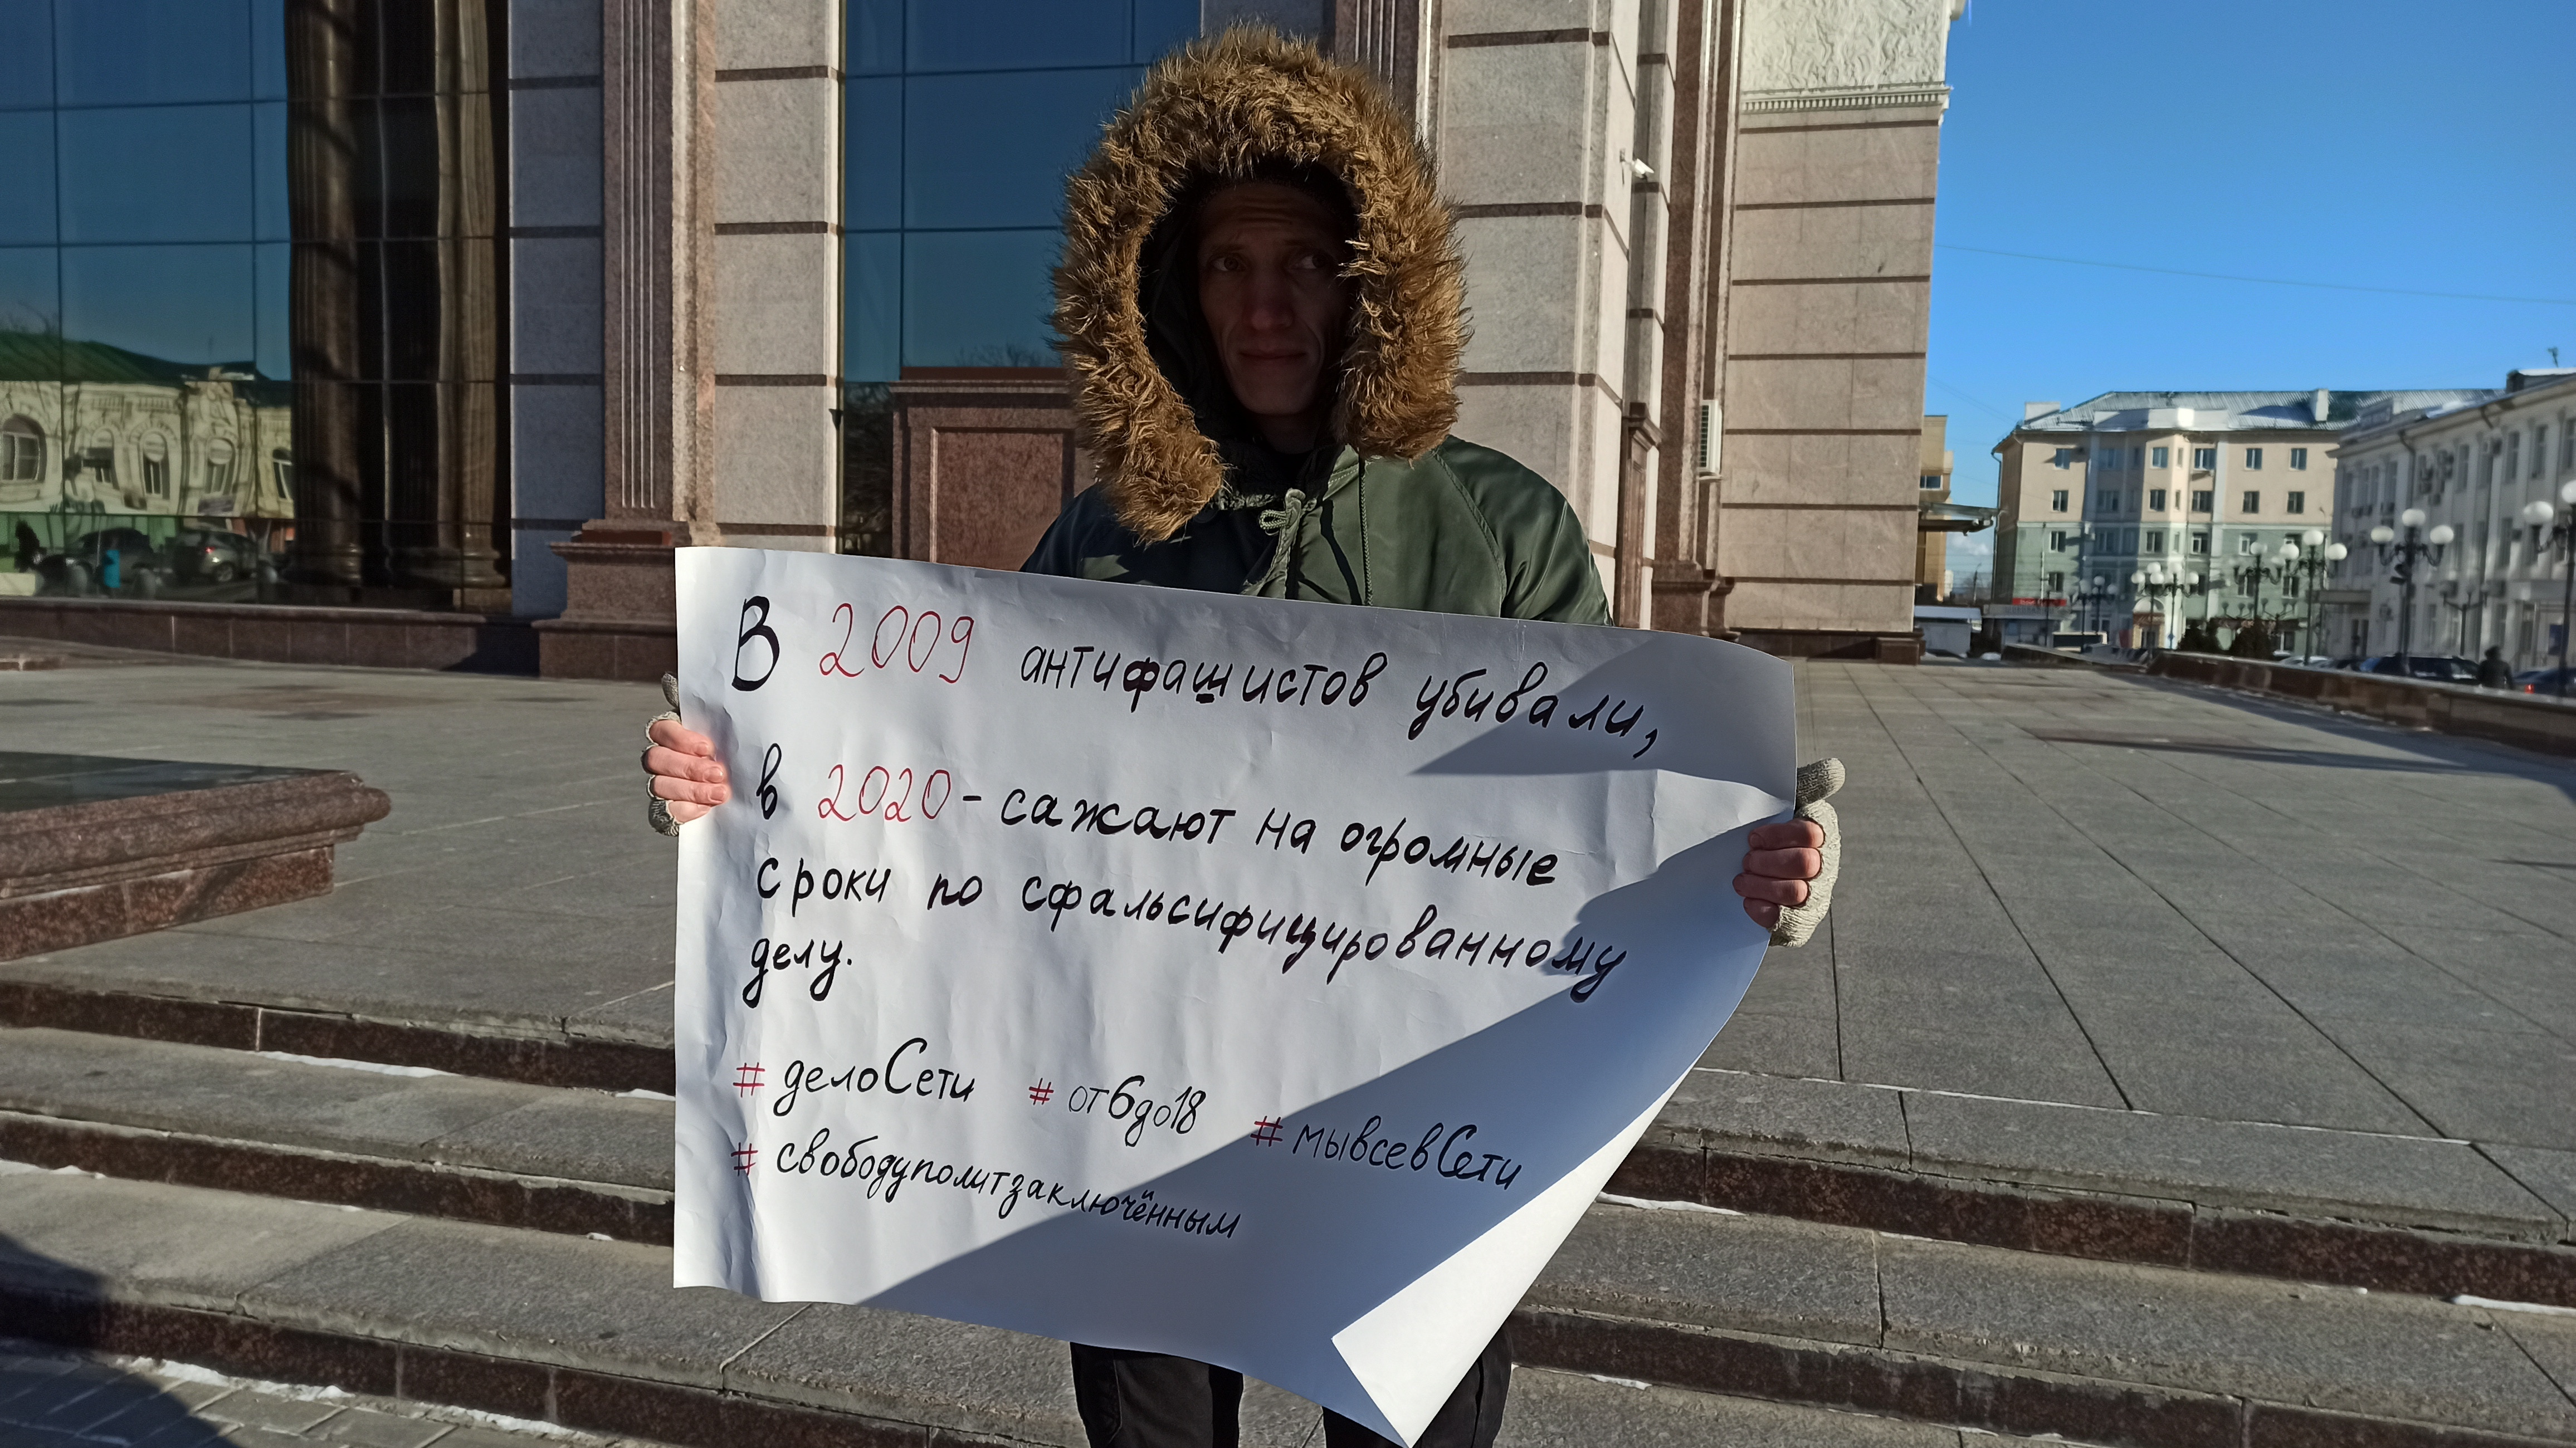 В 2009 антифашистов убивали,
в 2020 - сажают на огромные
сроки по сфальсифицированному
делу.
#делоСети #от6до18 #мывсевСети
#свободуполитзаключённым